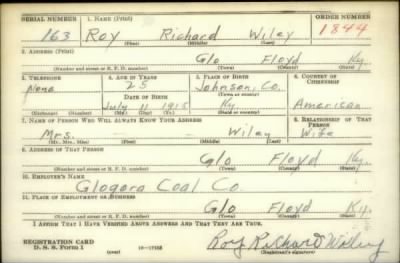 SERIAL NUMBER 1. NAME (Print) ORDER NUMBER
163 Roy Richard Wiley 1844
(First) (Middle) (Last)
2. ADDRESS (Print)
Glo Floyd Ky.
(Number and street or R. F. D. number) (Town) (County) (State)
3. TELEPHONE 4. AGE IN YEARS 5. PLACE OF BIRTH 6. COUNTRY OF CITIZENSHIP
None 25 Johnson, Co.
DATE OF BIRTH (Town or county)
July 11 1915 Ky. American
(Exchange) (Number) (Mo.) (Day) (Yr.) (State or country)
7. NAME OF PERSON WHO WILL ALWAYS KNOW YOUR ADDRESS 8. RELATIONSHIP OF THAT PERSON
Mrs. — — Wiley Wife
(Mr., Mrs., Miss) (First) (Middle) (Last)
9. ADDRESS OF THAT PERSON
Glo Floyd Ky.
(Number and street or R. F. D. number) (Town) (County) (State)
10. EMPLOYER'S NAME
Glogora Coal Co.
11. PLACE OF EMPLOYMENT OR BUSINESS
Glo Floyd Ky.
(Number and street or R. F. D. number) (Town) (County) (State)
I AFFIRM THAT I HAVE VERIFIED ABOVE ANSWERS AND THAT THEY ARE TRUE.
REGISTRATION CARD
D. S. S. FORM 1 Roy Richard Wiley
(Registrant's signature)